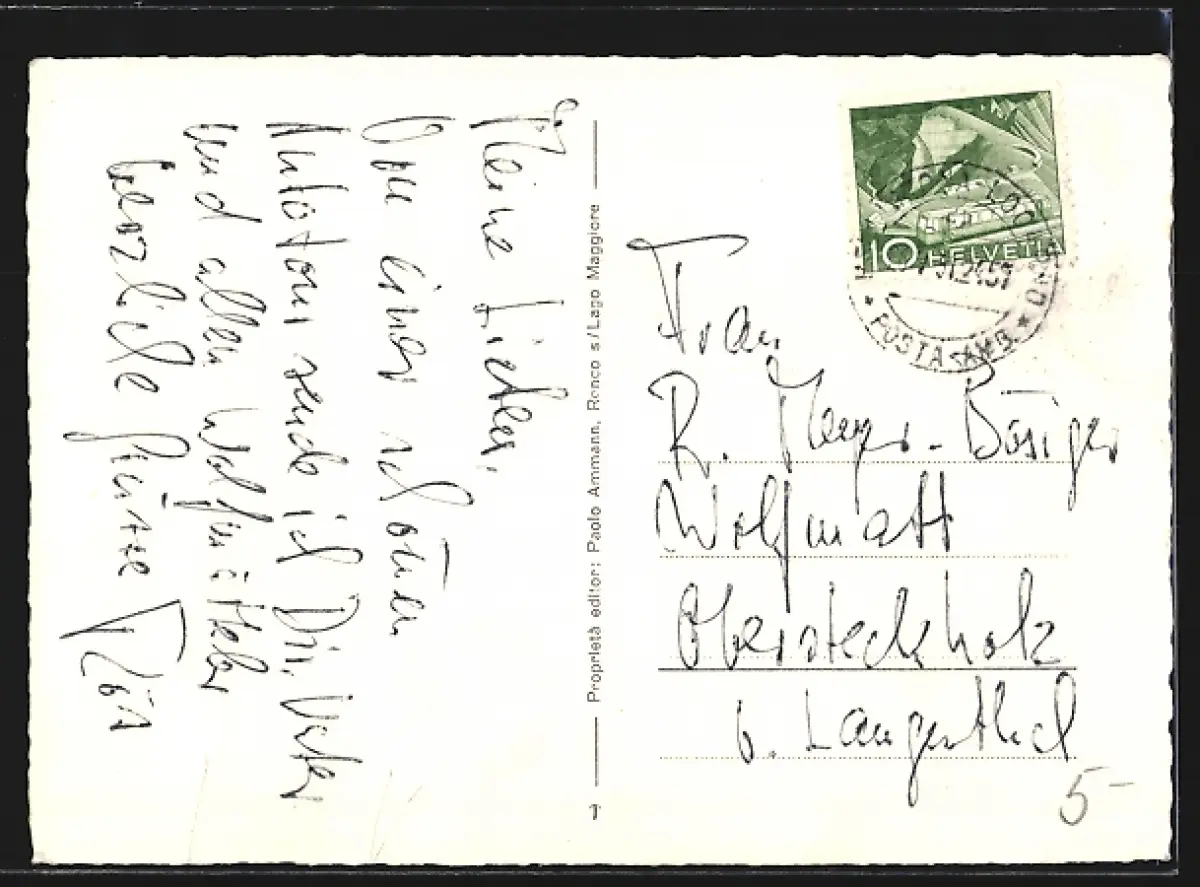 Meine Lieben,
Von einer schönen
Autotour sende ich Dir, Vater
und allen Wolfmätteler
herzliche Grüsse
Proprietà editor: Paolo Ammann, Ronco s/Lago Maggiore
1
10 HELVETIA
POSTA AMB.
Frau
R. Meyer-Bösiger
Wolfmatt
Obersteckholz
b. Langenthal
5-